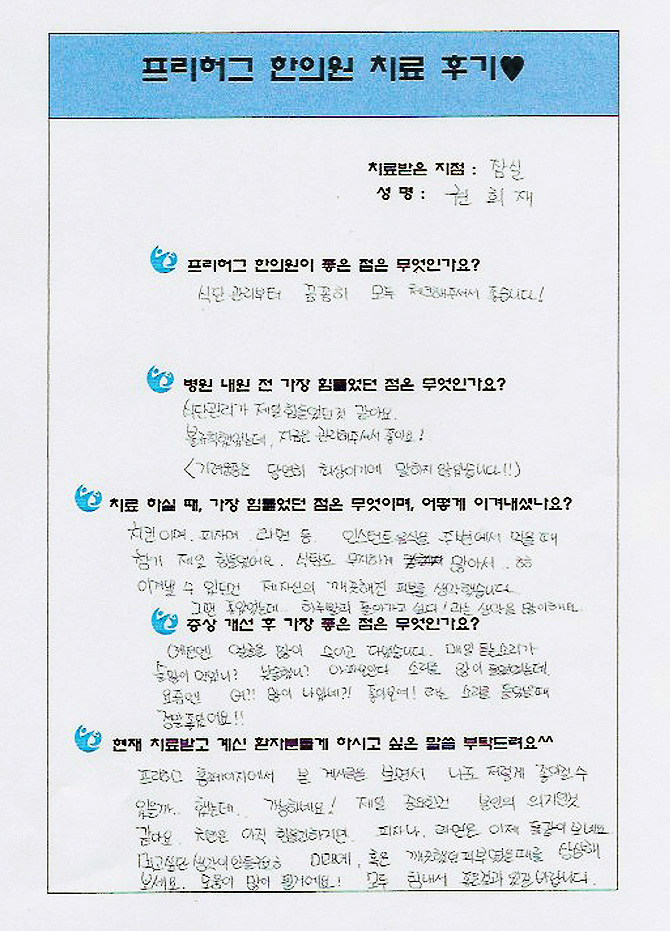 프리허그 한의원 치료 후기♥
치료받은 지점 : 잠실
성 명 : 권 희 재
프리허그 한의원이 좋은 점은 무엇인가요?
식단관리부터 꼼꼼히 모두 체크해주셔서 좋습니다!
병원 내원 전 가장 힘들었던 점은 무엇인가요?
식단관리가 제일 힘들었던것 같아요.
불규칙했었는데, 지금은 관리해주셔서 좋아요!
<가려움증은 당연히 최상이기에 말하지 않았습니다!!)
치료 하실 때, 가장 힘들었던 점은 무엇이며, 어떻게 이겨내셨나요?
치킨이며, 피자며, 라면 등. 인스턴트음식을 주변에서 먹을때
참기 제일 힘들었어요. 식탐도 무지하게 많아서..
이겨낼 수 있던건 제자신의 깨끗해진 피부를 생각했습니다.
그땐 좋았었는데.. 하루빨리 돌아가고 싶다! 라는 생각을 많이해요.
증상 개선 후 가장 좋은 점은 무엇인가요?
예전엔 얼굴을 많이 숙이고 다녔습니다. 매일 듣는소리가
술많이 먹었니? 낮술했니? 아파보인다 소리를 많이 들었었는데.
요즘엔 어?! 많이 나았네?! 좋아보여! 라는 소리를 들었을때
정말좋았어요!!
현재 치료받고 계신 환자분들게 하시고 싶은 말씀 부탁드려요^^
프리허그 홈페이지에서 본 게시글을 보면서 나도 저렇게 좋아질수
있을까.. 했는데.. 가능하네요! 제일 중요한건 본인의 의지인것
같아요. 치면은 아직 힘들긴하지만. 피자나, 라면은 이제 돌같이 보네요
먹고싶단 생각이안들정도 미래에, 혹은 깨끗했던피부였을때를 상상해
보세요. 도움이 많이 될거에요! 모두 힘내서 좋은결과 있길 바랍니다.